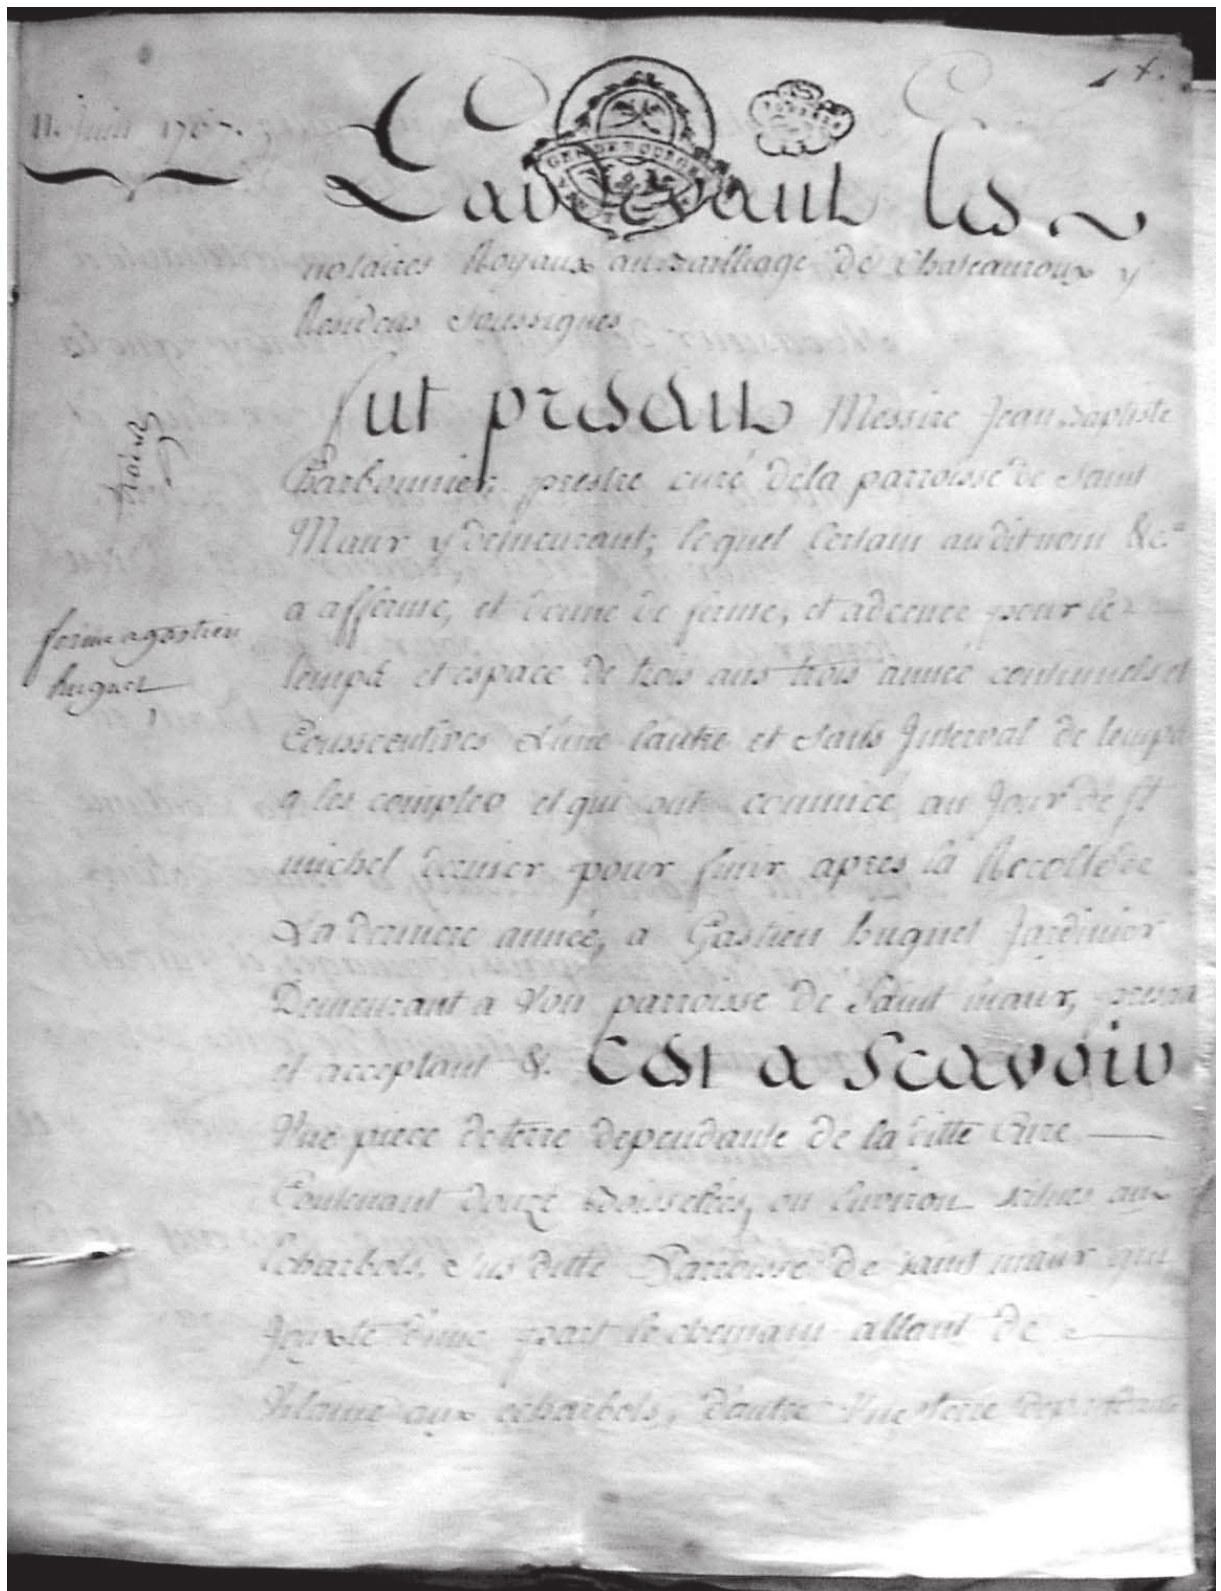 11. Juin 1767.
Pardevant Les
notaires Royaux au Bailliage de Chateauroux y
Residens Soussignes
fut present Messire Jean Baptiste
Charbonnier, prestre curé dela parroisse de Saint
Maur y demeurant; lequel Certain audit nom &c.a
a affermé, et donné de ferme, et adcencé pour le
temps et espace de trois ans trois année continuels et
Conssecutives L'une lautre et sans Interval de temps
a les compter et qui ont commencé au Jour de St
michel dernier pour finir apres la Recolte de
La derniere année, a Gastien huguet Jardinier
Demeurant a Von parroisse de Saint maur, present
et acceptant &. Cest a Scavoir
Une piece de terre dependante de la ditte Cure
Contenant douze Boisselées, ou Environ scitues aux
Echarbots, susditte Parroisse de saint maur qui
Jouxte d'une part le chemain allant de
Vilaine aux echarbots, d'autre Une terre dependante
ferme a gastien
huguet
GEN DE BOURGES